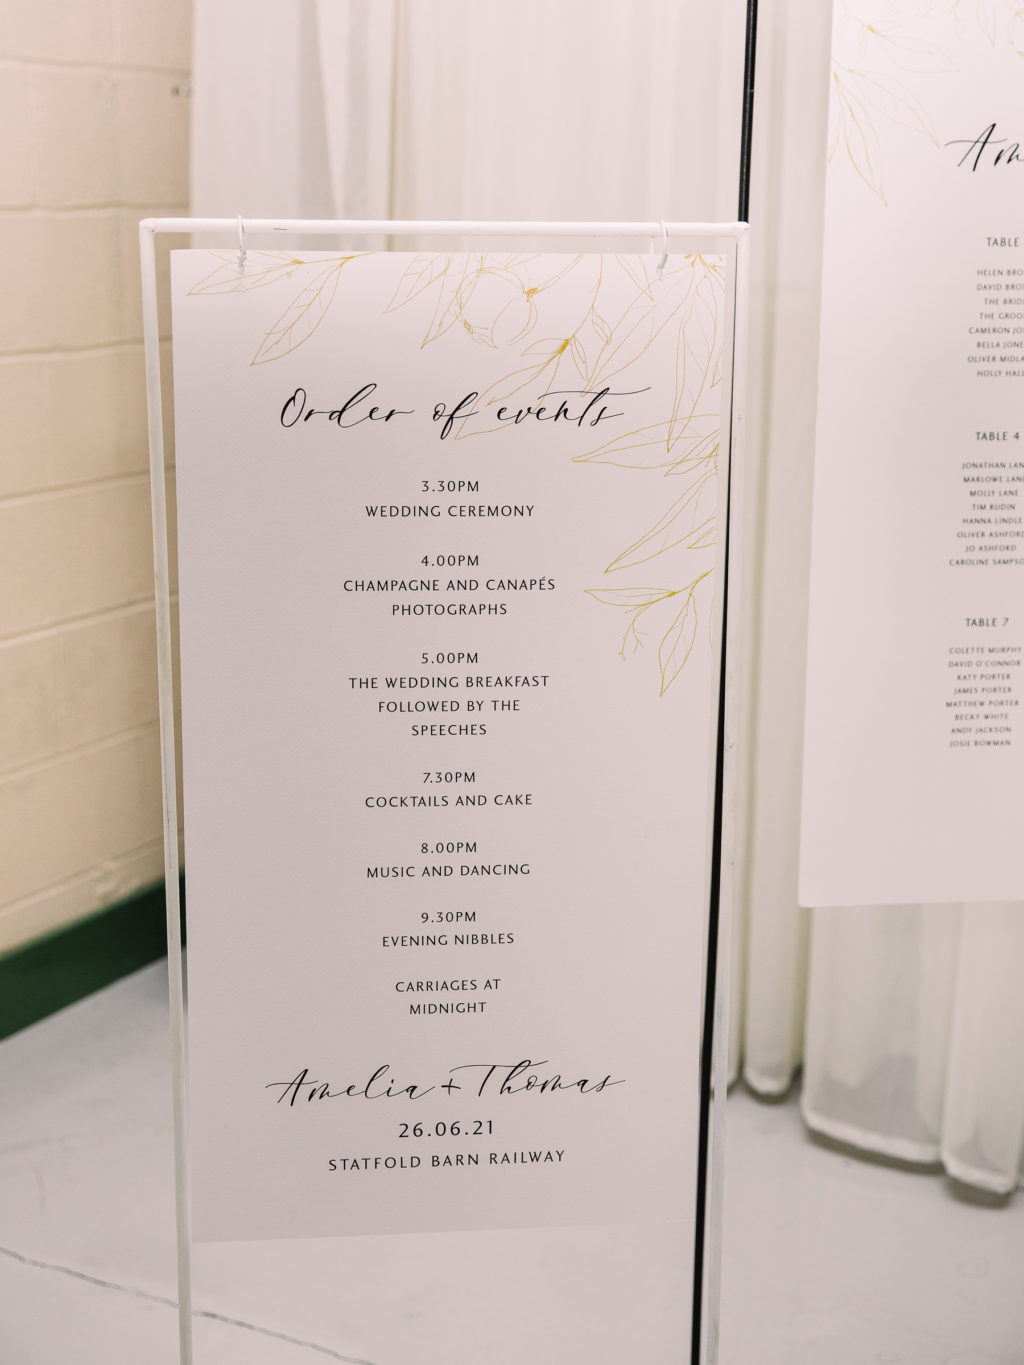 Order of events
3.30PM
WEDDING CEREMONY
4.00PM
CHAMPAGNE AND CANAPÉS
PHOTOGRAPHS
5.00PM
THE WEDDING BREAKFAST
FOLLOWED BY THE
SPEECHES
7.30PM
COCKTAILS AND CAKE
8.00PM
MUSIC AND DANCING
9.30PM
EVENING NIBBLES
CARRIAGES AT
MIDNIGHT
Amelia + Thomas
26.06.21
STATFOLD BARN RAILWAY
TABLE
HELEN
DAVID
THE
THE
CAMERON
BELLA
OLIVER
HOLLY
TABLE 4
JONATHAN
MARLOWE
MOLLY LANE
TIM RUDIN
HANNA
OLIVER
JO ASHFORD
CAROLINE
TABLE 7
COLETTE MURPHY
DAVID O'CONNOR
KATY PORTER
JAMES PORTER
MATTHEW PORTER
BECKY WHITE
ANDY JACKSON
JOSIE BOWMAN